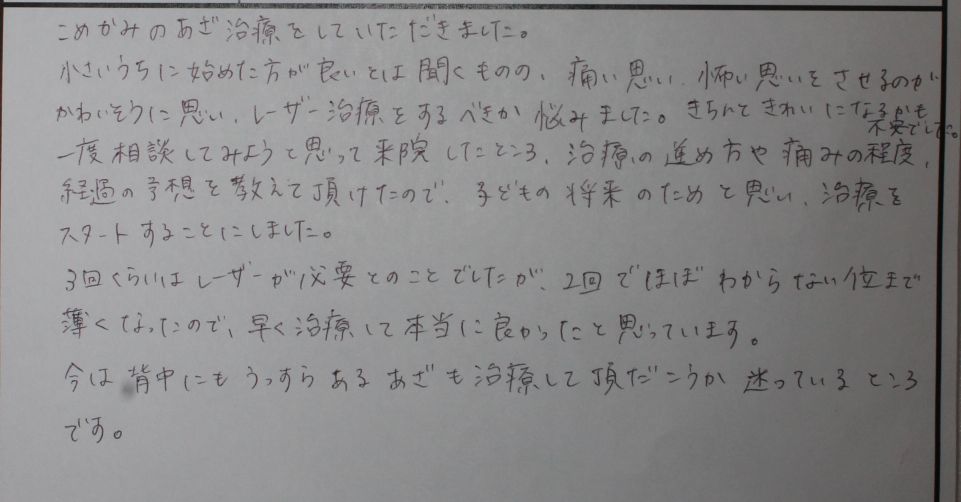 こめかみのあざ治療をしていただきました。
小さいうちに始めた方が良いとは聞くものの、痛い思い、怖い思いをさせるのが
かわいそうに思い、レーザー治療をするべきか悩みました。きちんときれいになるかも
不安でした。
一度相談してみようと思って来院したところ、治療の進め方や痛みの程度、
経過の予想を教えて頂けたので、子どもの将来のためと思い、治療を
スタートすることにしました。
3回くらいはレーザーが必要とのことでしたが、2回でほぼわからない位まで
薄くなったので、早く治療して本当に良かったと思っています。
今は背中にもうっすらあるあざも治療して頂だこうか迷っているところ
です。